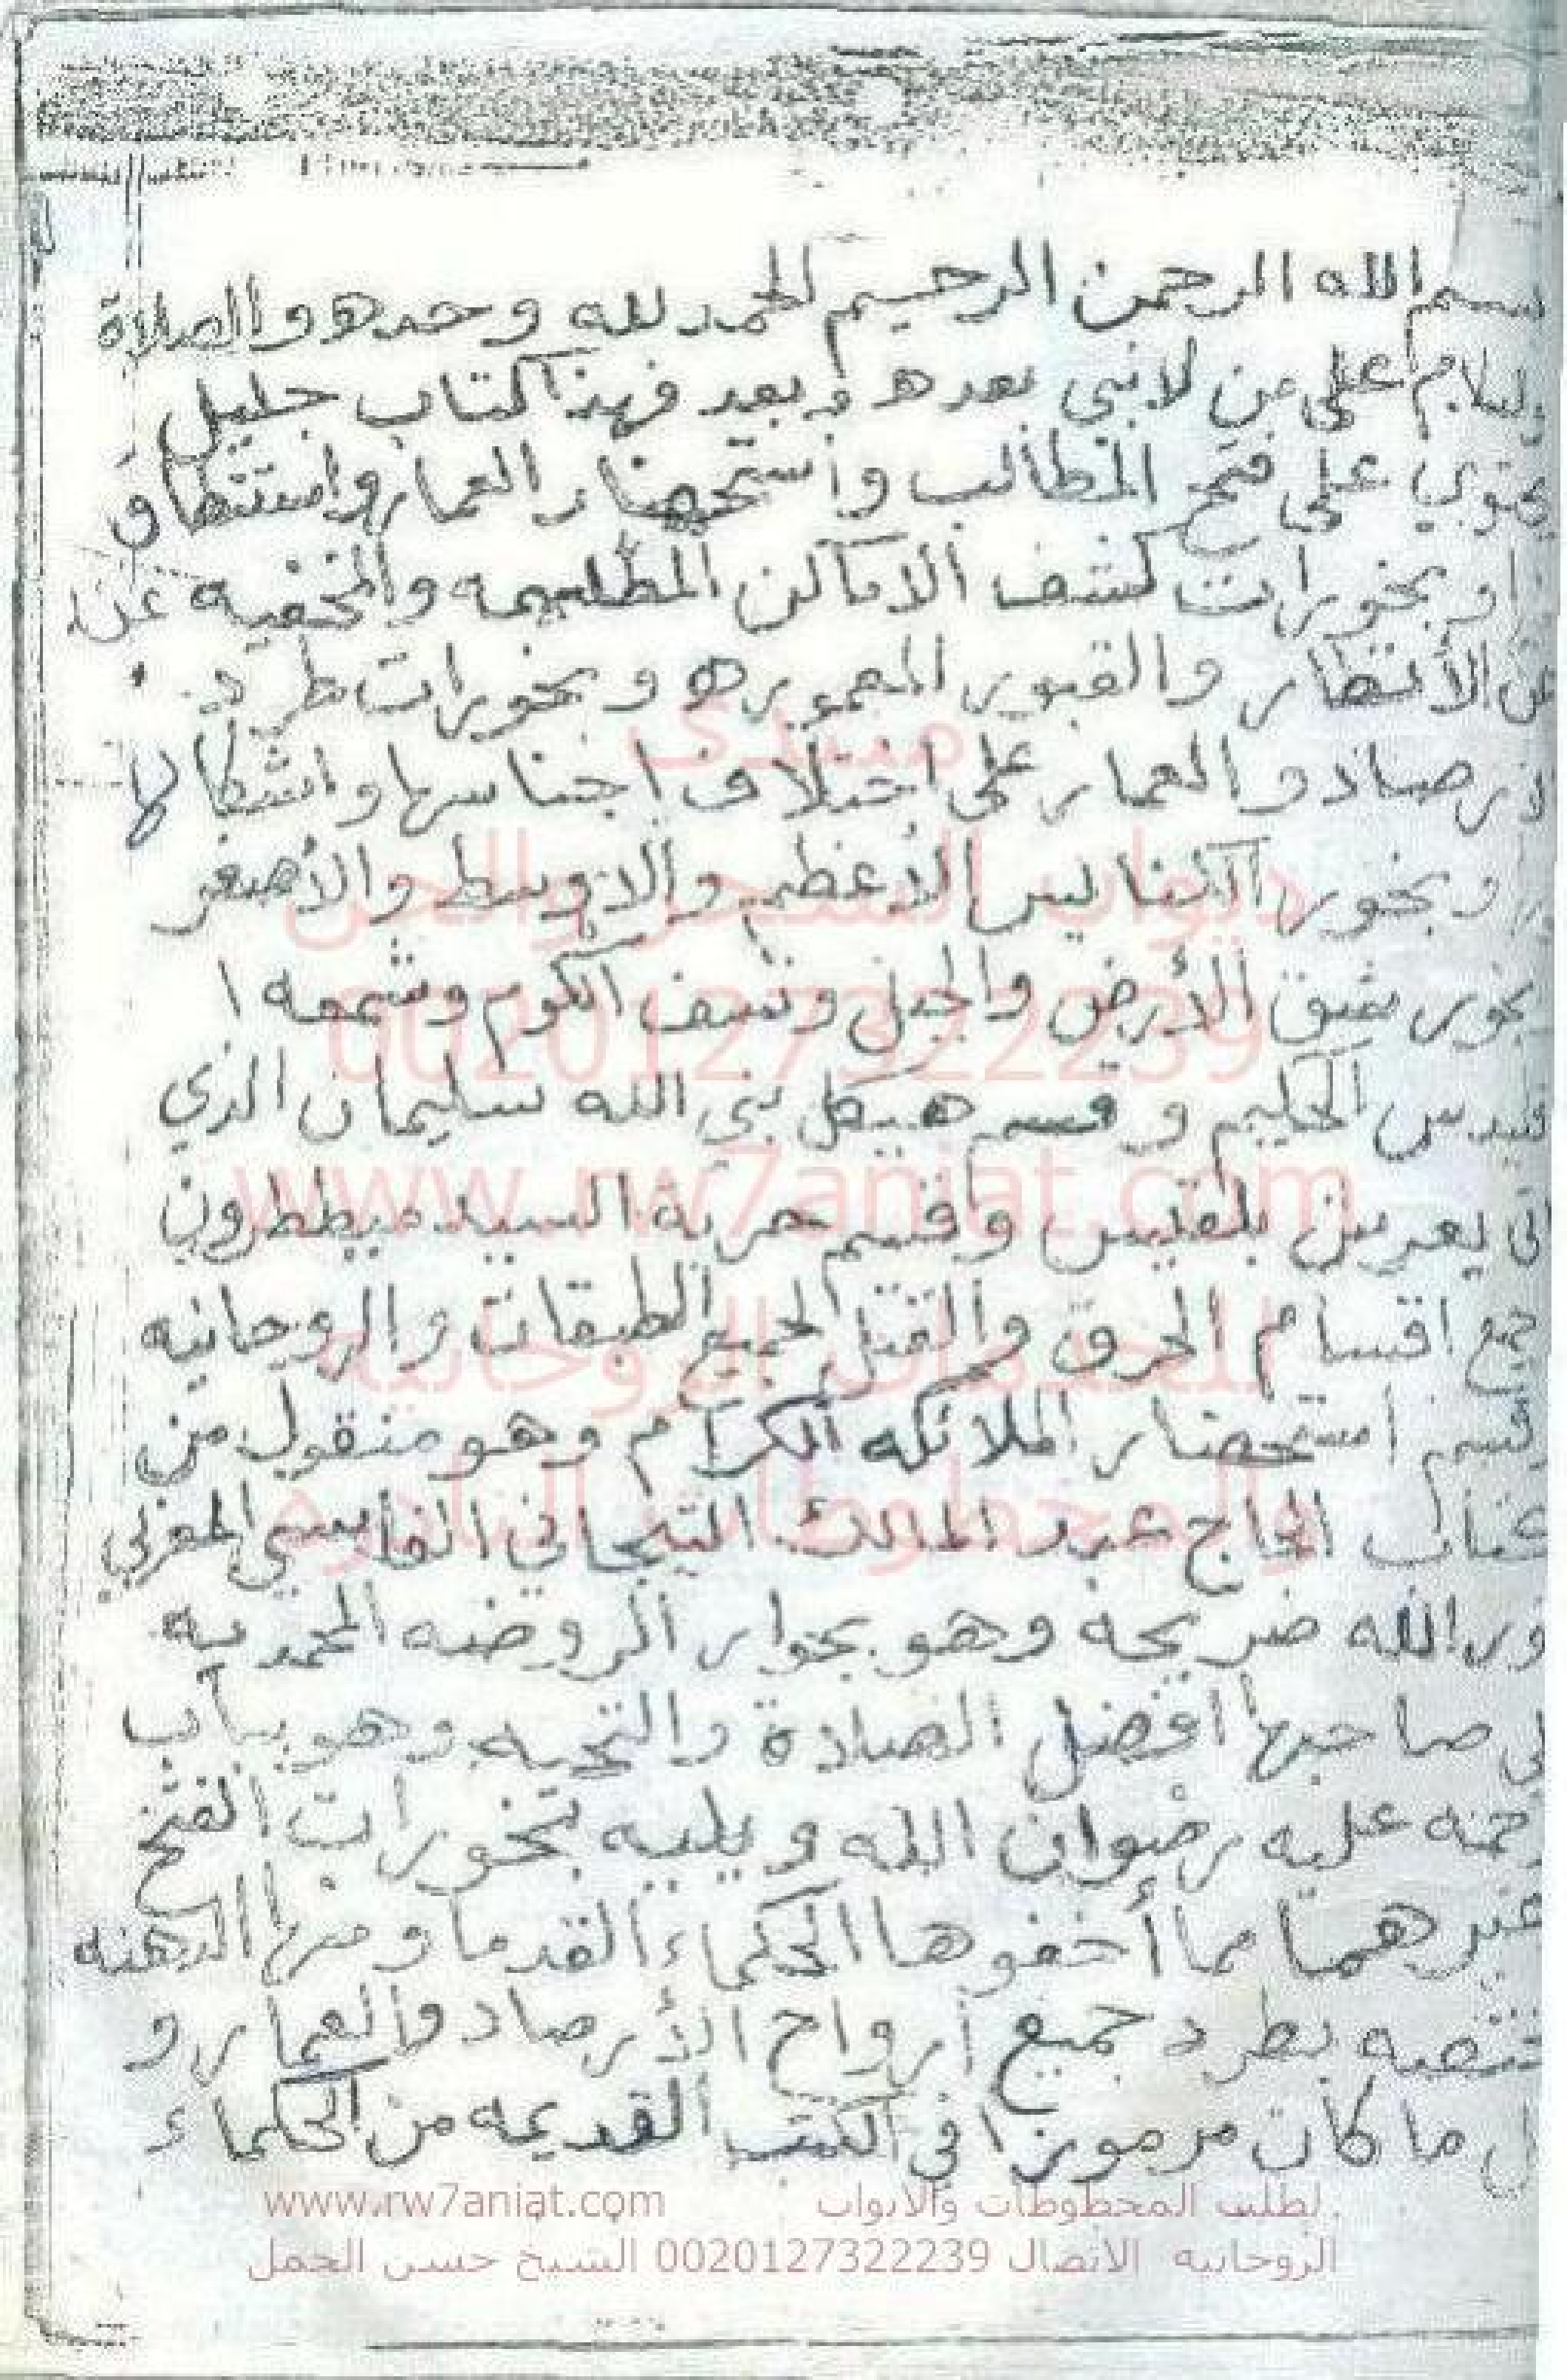 بسم الله الرحمن الرحيم الحمد لله وحده والصلاة
والسلام على من لانبي بعده وبعد فهذا كتاب جليل
يحتوي على فتح المطالب واستحضار العمار واستنطاق
وبخورات كشف الاماكن المطلسمه والمخفيه عن
الأنظار والقبور المعموره وبخورات طرد
الارصاد والعمار على اختلاف اجناسها واشكالها
وبخور الكناليس الأعظم والاوسط والأصغر
بخور شق الأرض والجبل ونسف الكوم وشمعه ا
الحكيم وقسم هيكل نبي الله سليمان الذي
بعرش بلقيس واقسم حربة السيد ميططرون
جميع اقسام الحرق والقتل لجميع الطبقات والروحانيه
وقسم استحضار الملائكه الكرام وهو منقول من
كتاب الحاج عبد المالك التيجاني الفاسي المغربي
نور الله ضريحه وهو بجوار الروضه المحمديه
صاحبها افضل الصلاة والتحيه وهو بباب
عليه رضوان الله ويليه بخورات الفتح
وغيرهما مما أخفوها الحكماء القدما ومنها الدهنه
بطرد جميع أرواح الأرصاد والعمار و
ما كان مرموزا في الكتب القديمه من الحكماء
منتدى
ديوان السحر والجن
0020127322239
www.rw7aniat.com
للخدمات الروحانية
والمخطوطات النادرة
www.rw7aniat.com لطلب المخطوطات والابواب
الروحانيه الاتصال 0020127322239 الشيخ حسن الجمل